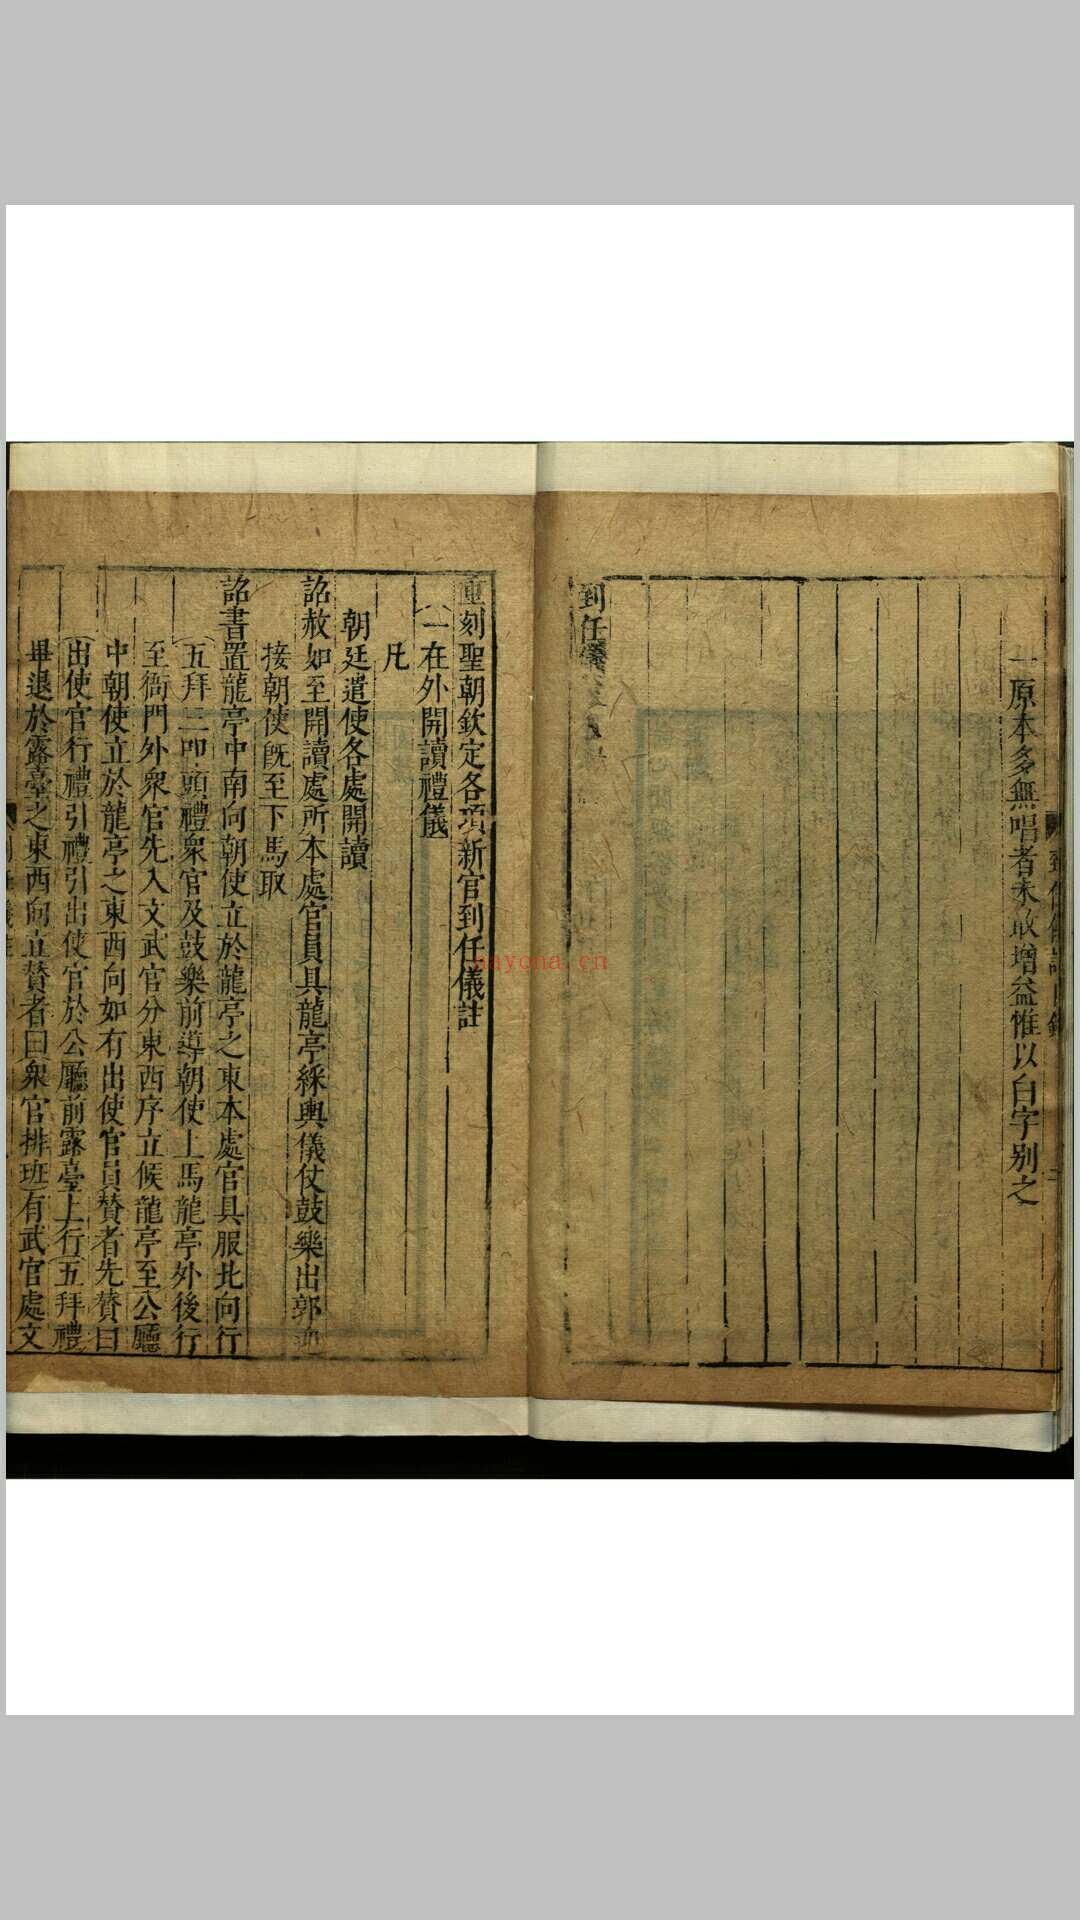 一原本多無唱者未敢增益惟以白字别之
到任儀
重刻聖朝欽定各項新官到任儀註
一在外開讀禮儀
凡
朝廷遣使各處開讀
詔赦如至開讀處所本處官員具龍亭綵輿儀仗鼓樂出郭迎
接朝使旣至下馬取
詔書置龍亭中南向朝使立於龍亭之東本處官具服北向行
五拜三叩頭禮衆官及鼓樂前導朝使上馬龍亭外後行
至衙門外衆官先入文武官分東西序立候龍亭至公廳
中朝使立於龍亭之東西向如有出使官員贊者先贊曰
出使官行禮引禮引出使官於公廳前露臺上行五拜禮
畢退於露臺之東西向立贊者曰衆官排班有武官處文
nayona.cn